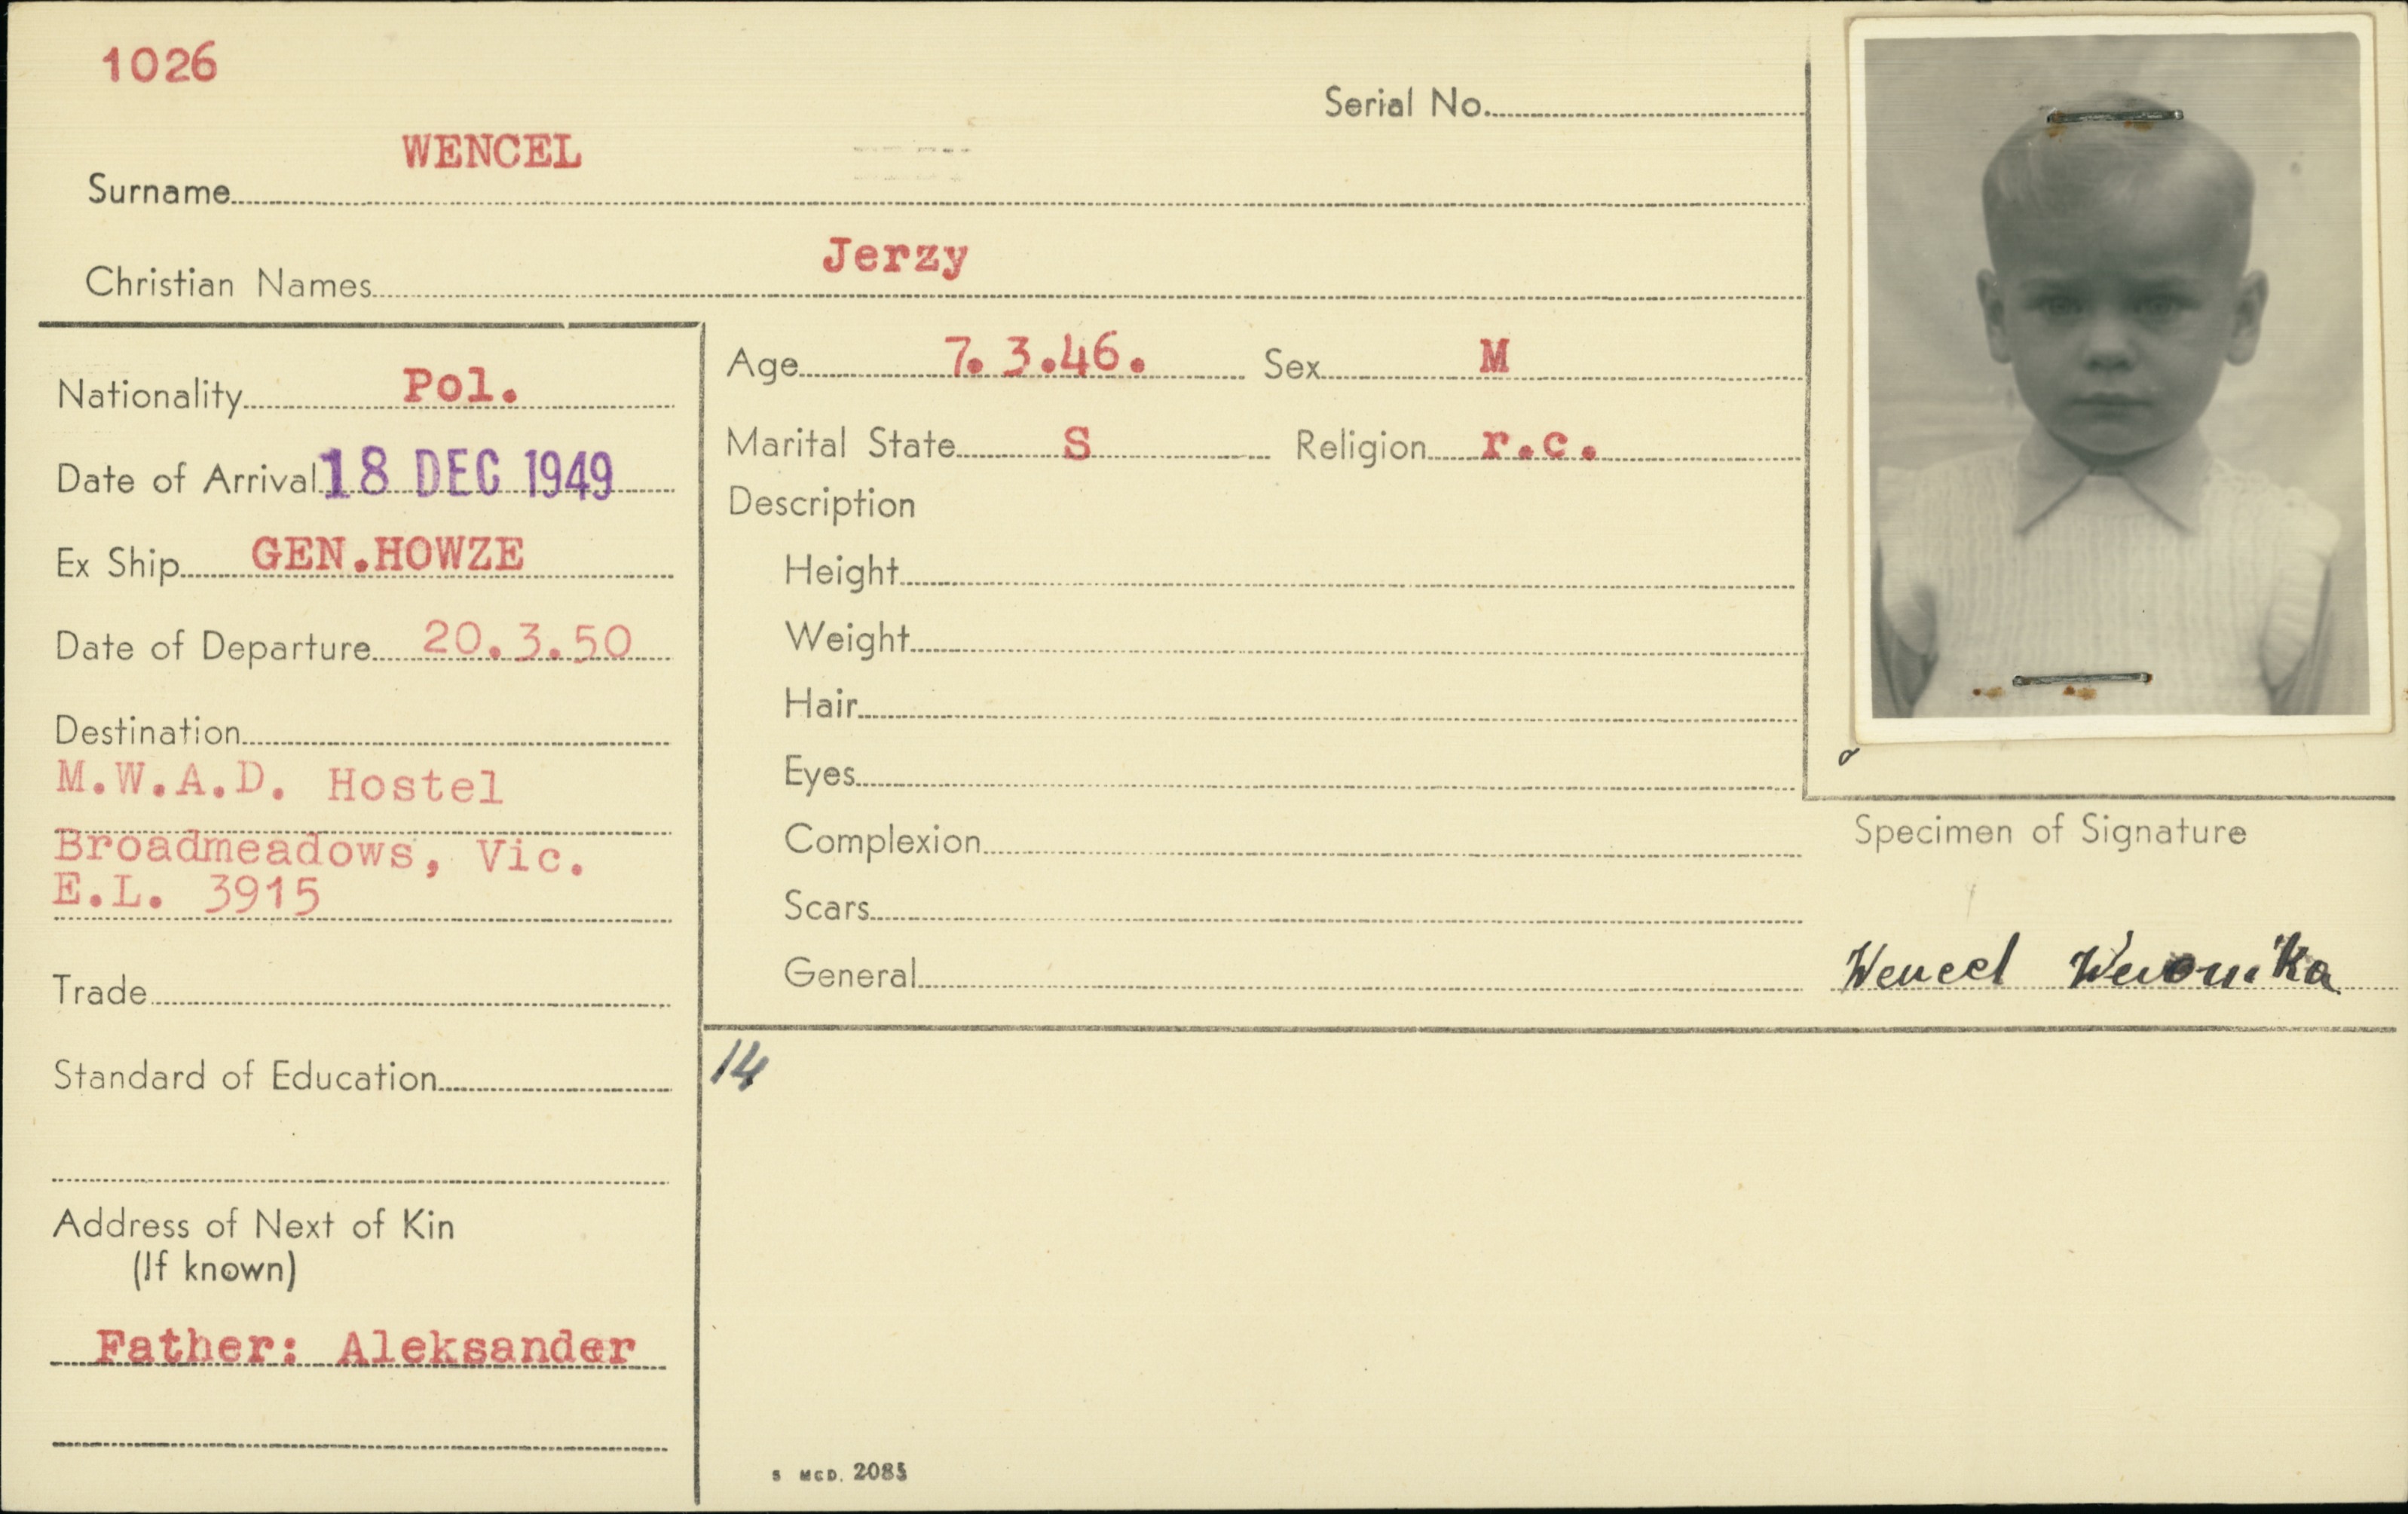 1026
Serial No.
Surname WENCEL
Christian Names Jerzy
Nationality Pol.
Date of Arrival 18 DEC 1949
Ex Ship GEN.HOWZE
Date of Departure 20.3.50
Destination
M.W.A.D. Hostel
Broadmeadows, Vic.
E.L. 3915
Trade
Standard of Education
Address of Next of Kin
(If known)
Father: Aleksander
Age 7.3.46. Sex M
Marital State S Religion r.c.
Description
Height
Weight
Hair
Eyes
Complexion
Scars
General
Specimen of Signature
Wencel Weronika
14
S McD. 2085